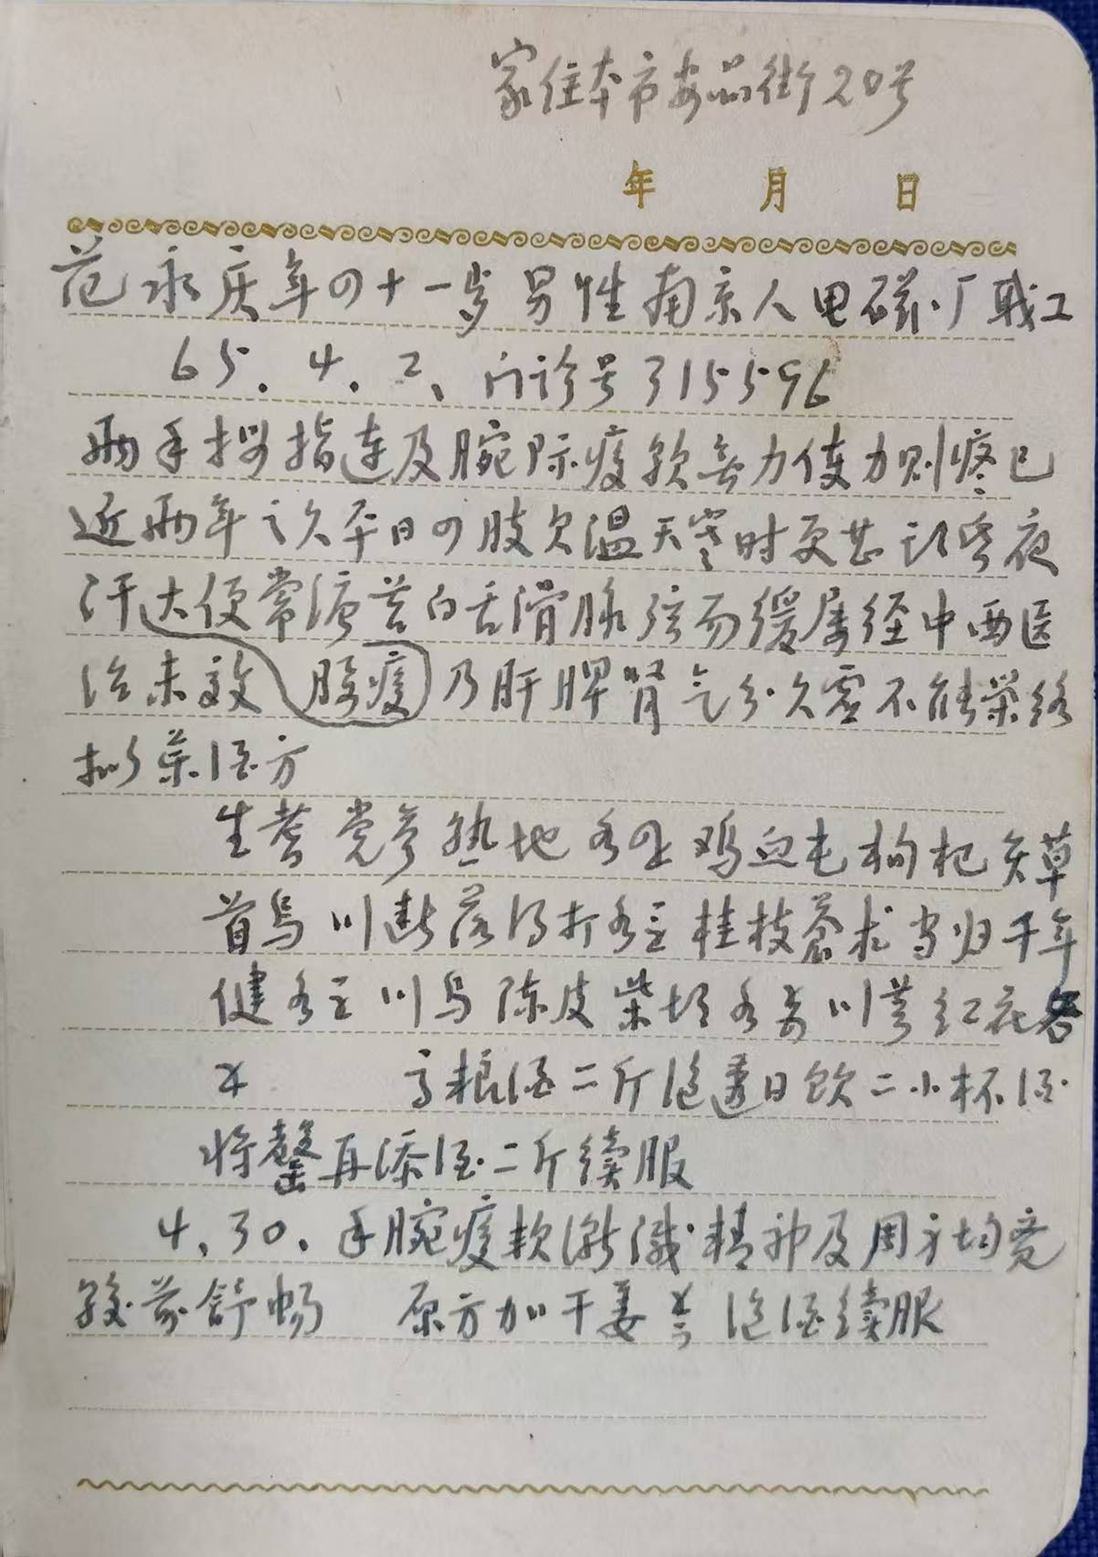 家住本市安品街20号
年 月 日
范永庆年四十一岁男性南京人电磁厂职工
65.4.2、门诊号315596
两手拇指连及腕际痠软无力使力则疼已
近两年之久平日四肢欠温天寒时更甚 夜
汗大便常溏苔白舌滑脉弦而缓屡经中西医
治未效 腰痠 乃肝脾肾气分久虚不能荣络
拟药酒方
生芪 党参 熟地 各 鸡血 枸杞 草
首乌 川断 落得打各 桂枝苍术当归千年
健各 川乌 陈皮 柴胡各 川芎红花各
高粮酒二斤泡透日饮二小杯酒
将罄再添酒二斤续服
4、30、手腕痠软渐减 精神及周身均觉
较前舒畅 原方加干姜 泡酒续服